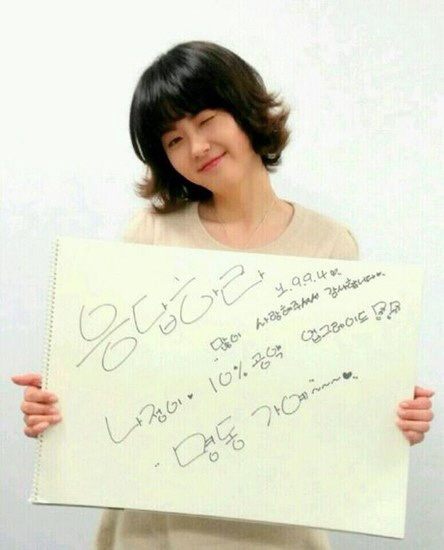 응답하라 1994에
많이 사랑해주셔서 감사합니다.
나정이♥ 10% 공약 업그레이드
명동 가에~~~♥.